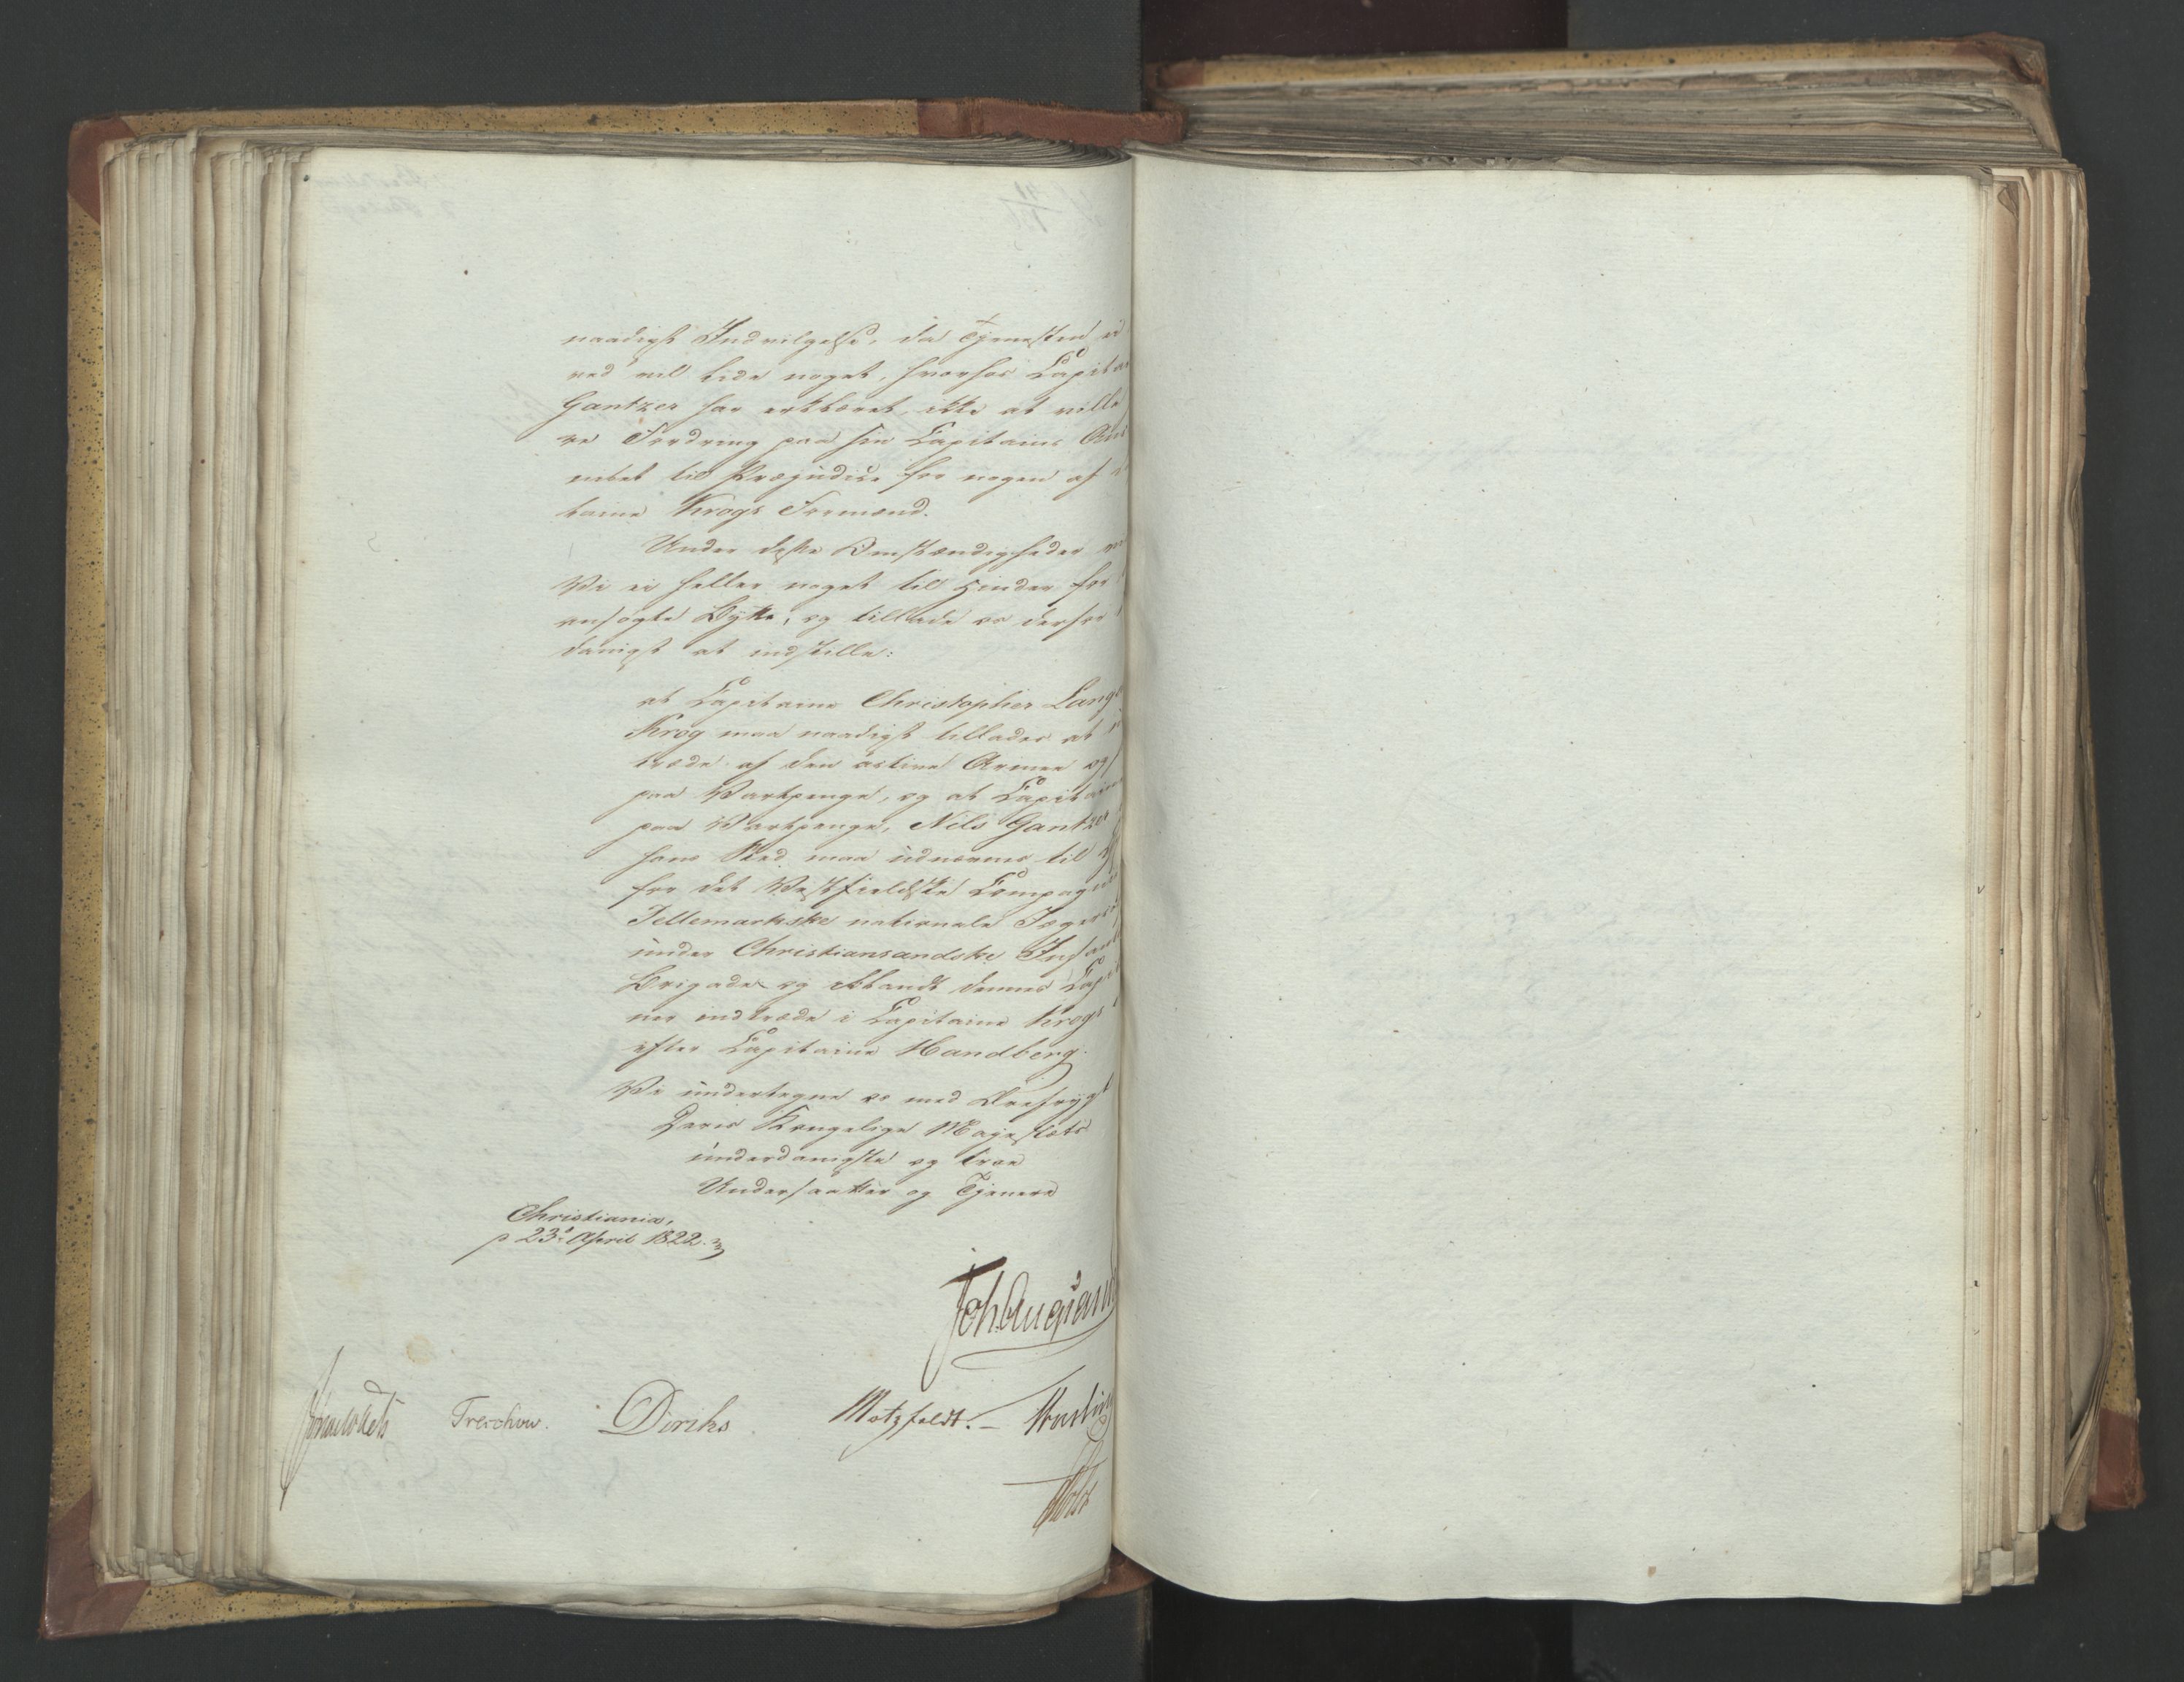 naadigst Indvilgelse, da Tjenesten ei
ved vil lide noget, hvorhos Capita
Gantzer har erklæret, ikke at ville
re Fordring paa sin Capitains An
nitet til Præjudice for nogen af
taine Krogs Formænd.
Under disse Omstændigheder
Vi ei heller noget til Hinder for
ansøgte Bytte, og tillade os derfor
danigst at indstille:
at Capitaine Christopher Lang
Krog maa naadigst tillades at
træde af den active Armee og
paa Vartpenge, og at Capitaine
paa Vartpenge, Nils Gantzer
hans Sted maa udnævnes til
for det Vestfieldske Compagnie
Tellemarkske nationale Jæger
under Christiansandske Infant
Brigade og iblandt dennes Capi
ner indtræde i Capitaine Krogs
efter Capitaine Handberg.
Vi undertegne os med Ærefrygt
Deres Kongelige Majestæts
underdanigste og troe
Undersaatter og Tjenere
Christiania,
d 23d April 1822.
Joh. Aug Sand
Sommerhielm Treschow. Diriks Motzfeldt. Fasting
Holst